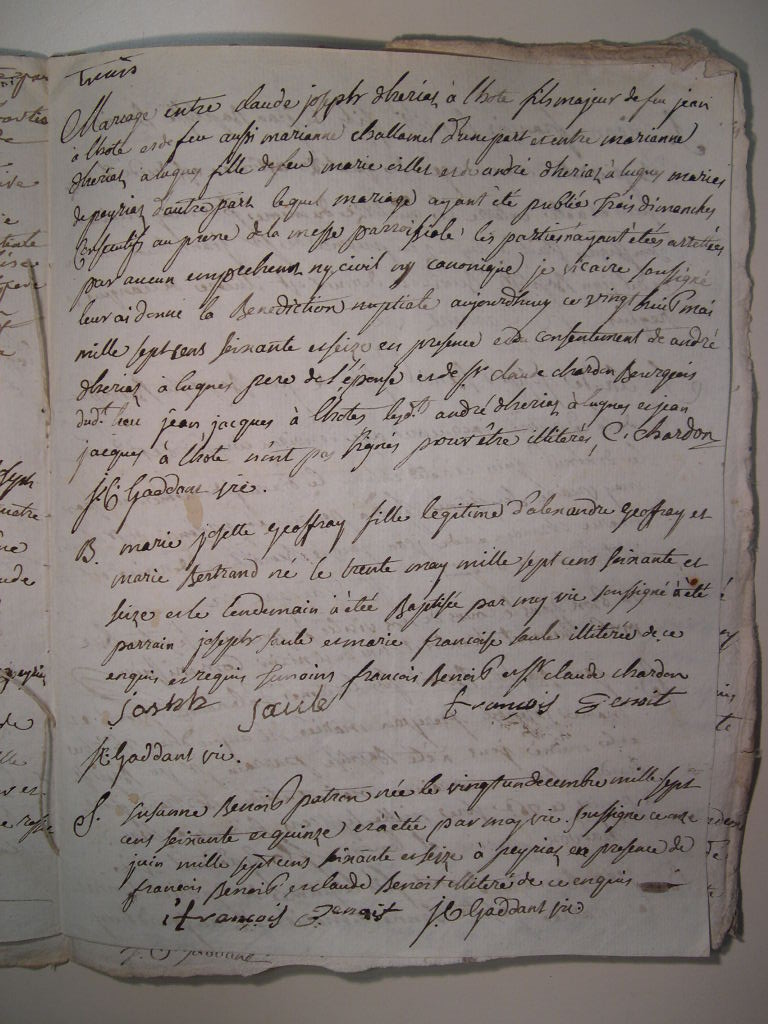 trois
Mariage entre claude joseph dheriaz à lhote fils majeur de feu jean
à lhote et de feu aussi marianne challamel d'une part et entre marianne
dheriaz a lugnes fille de feu marie cillet et de andré dheriaz à lugnes mariés
de peyriaz d'autre part lequel mariage ayant été publié trois dimanches
Consecutifs au prone de la messe parroissiale les parties n'ayant étées arretées
par aucun empechement ny civil ny canonique je vicaire soussigné
leur ai donné la Benediction nuptiale aujourdhuy ce vingt huit mai
mille sept cens soixante et seize en presence et du consentement de andré
dheriaz à lugnes pere de l'épouse et de sr claude chardon Bourgeois
dudt lieu jean jacques à lhotes lesdt andré dheriaz à lugnes et jean
jacques à lhote n'ont pas signés pour être illiterés C. chardon
JC Gaddant vic.
B. marie josette Geoffray fille legitime d'alexandre Geoffray et
marie Bertrand né le trente may mille sept cens soixante et
seize et le lendemain à été Baptisée par moy vic soussigné à été
parrain joseph saule et marie francoise saule illiterée de ce
enquis et requis temoins francois Benoit et sr claude chardon
joseph saule françois Benoit
JC Gaddant vic.
S. susanne Benoit patron née le vingt un decembre mille sept
cens soixante et quinze et à été par moy vic. soussigné ce onze
juin mille sept cens soixante et seize à peyriaz en presence de
francois Benoit et claude Benoit illiteré de ce enquis
françois Benoit JC Gaddant vic